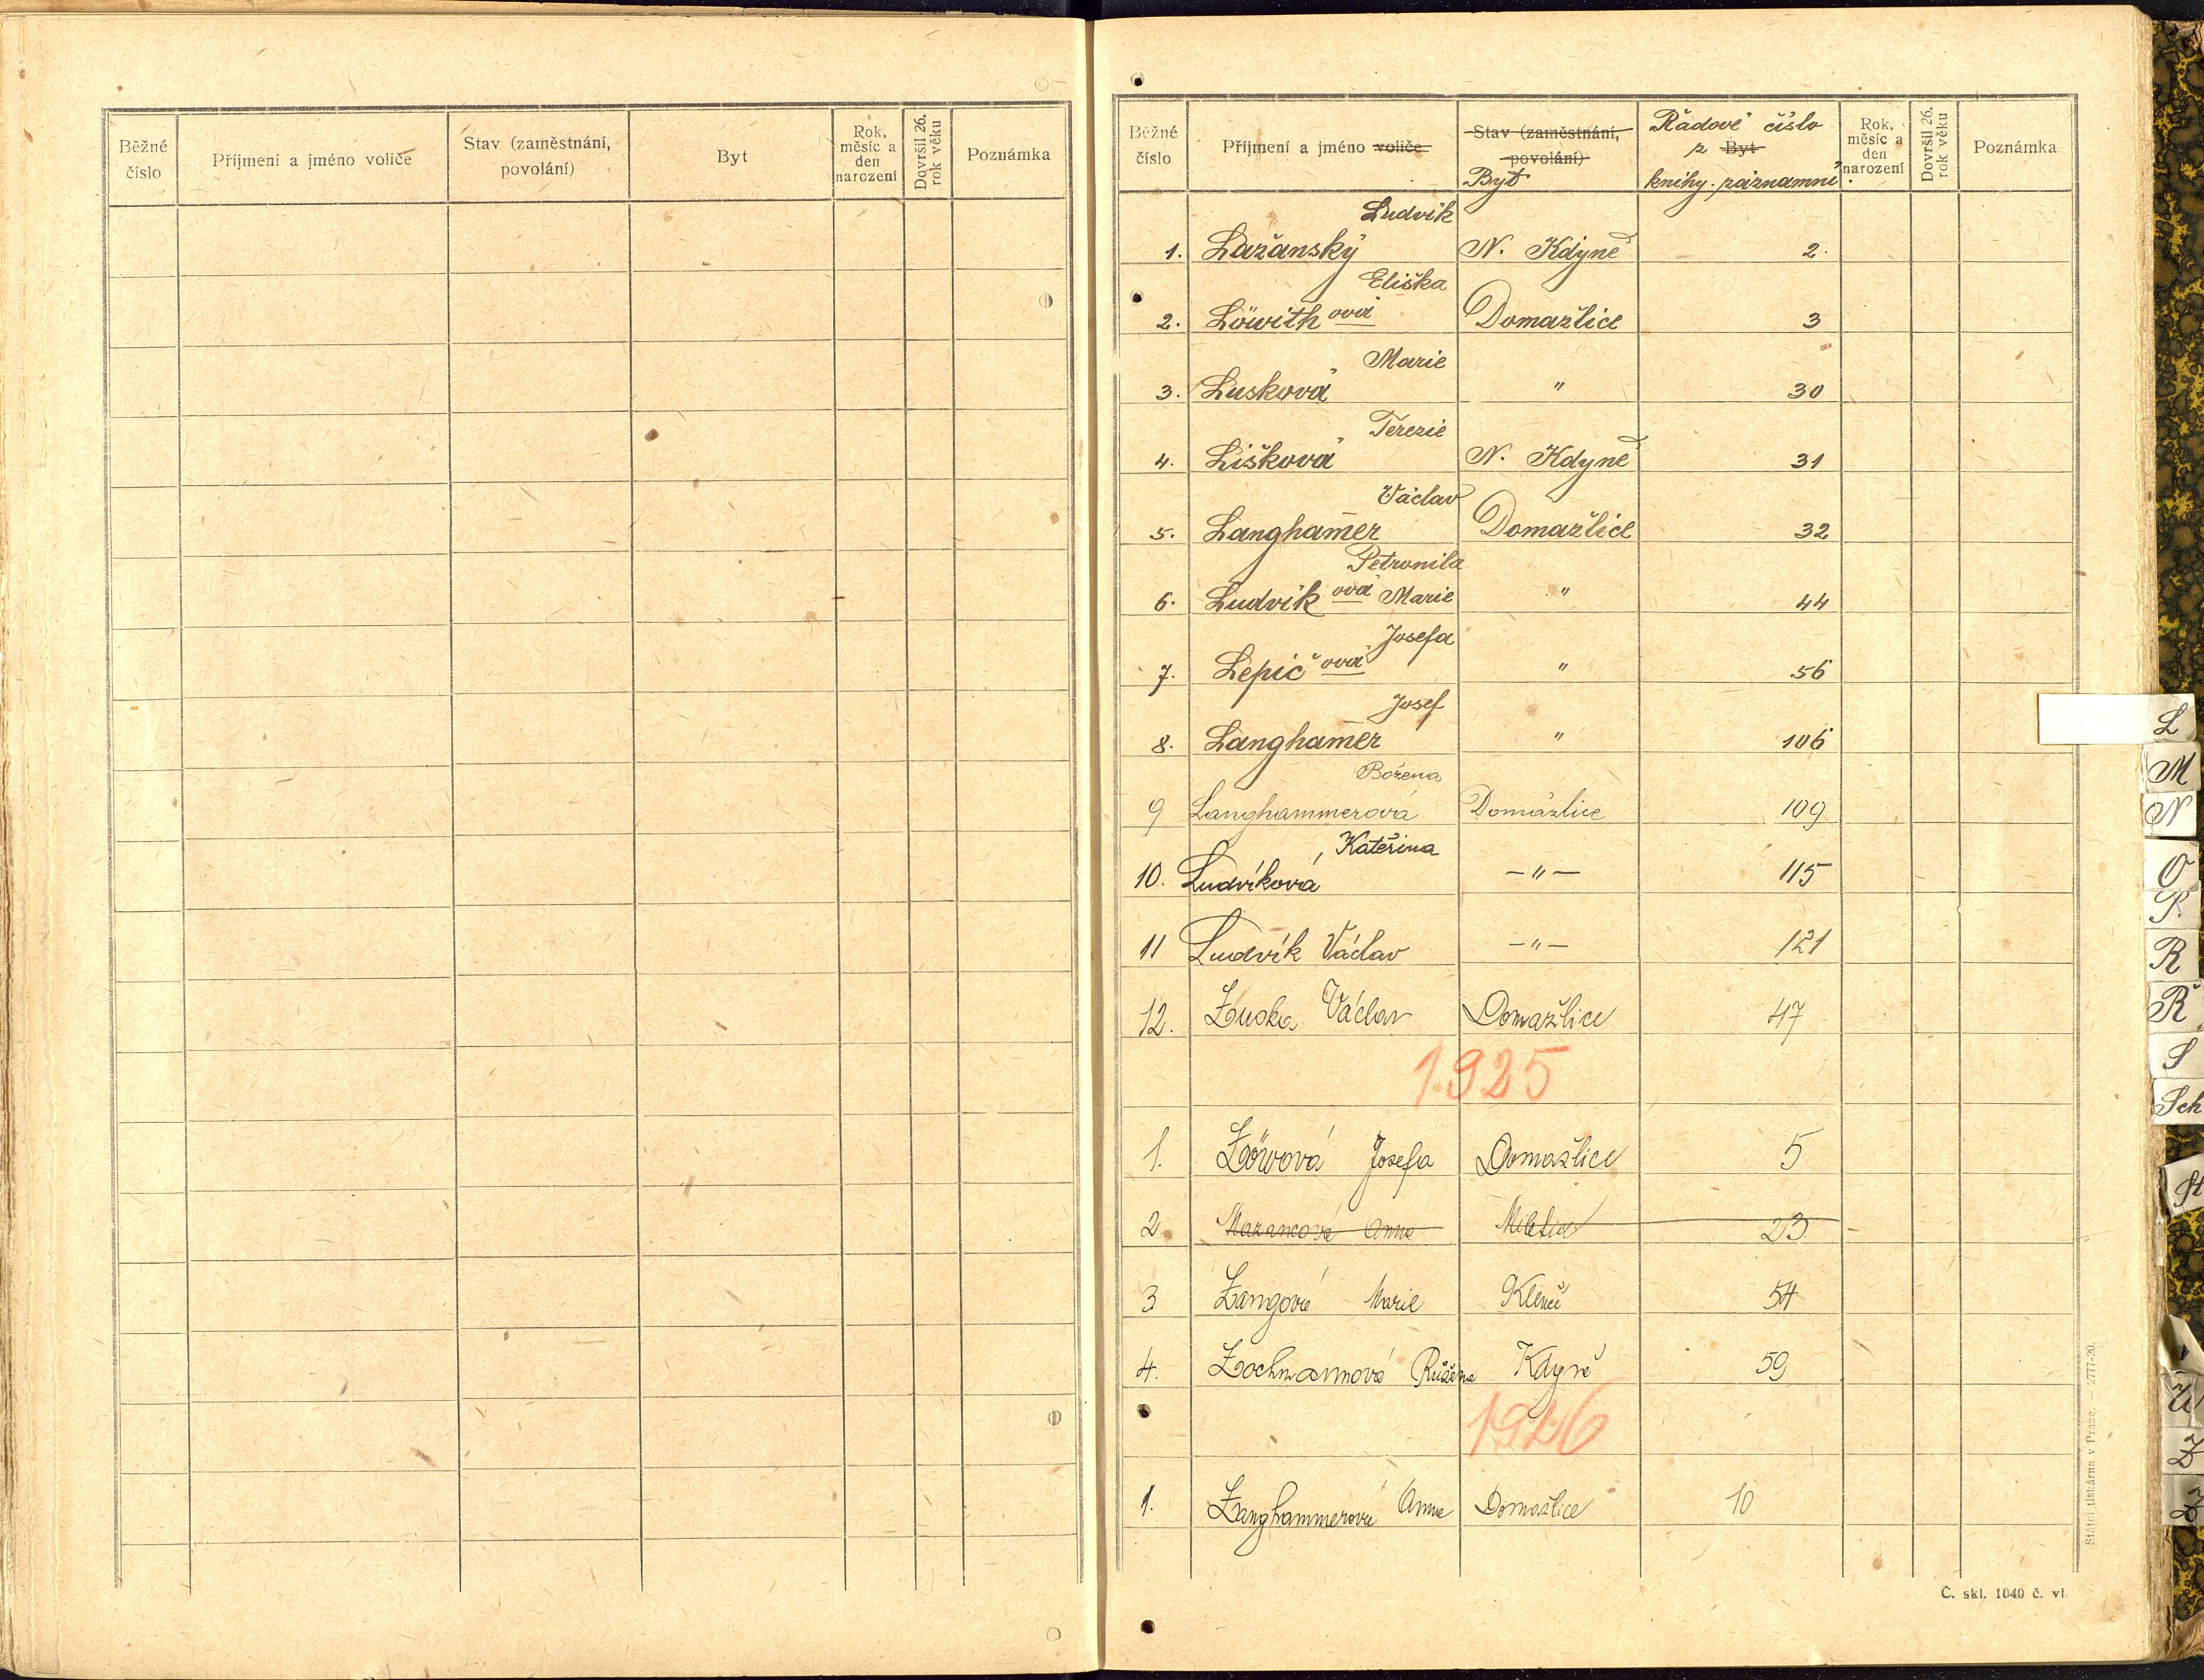 Běžné číslo Příjmení a jméno voliče Stav (zaměstnání, povolání) Byt Rok, měsíc a den narození Dovršil 26. rok věku Poznámka
Běžné číslo Příjmení a jméno voliče Stav (zaměstnání, povolání) Byt Řadové číslo z Byt knihy záznamní Rok, měsíc a den narození Dovršil 26. rok věku Poznámka
Ludvík
1. Lažanský N. Kdyně 2.
Eliška
2. Löwithová Domažlice 3
Marie
3. Lusková " 30
Terezie
4. Lišková N. Kdyně 31
Václav
5. Langham̄er Domažlice 32
Petronila
6. Ludvíková Marie " 44
Josefa
7. Lepičová " 56
Josef
8. Langham̄er " 106
Božena
9 Langhammerová Domažlice 109
Kateřina
10. Ludvíková, –"– 115
11 Ludvík Václav –"– 121
12. Luska Václav Domažlice 47
1925
1. Löwová Josefa Domažlice 5
2. Mazancová Anna 23
3 Langová Marie Klenčí 54
4. Lochmannová Růžena Kdyně 59
1926
1. Langhammerová Anna Domažlice 10
Č. skl. 1040 č. vl.
Státní tiskárna v Praze. — 2777-20.
L
M
N
O
P.
R
Ř
S
Sch
St
U
Z
Ž